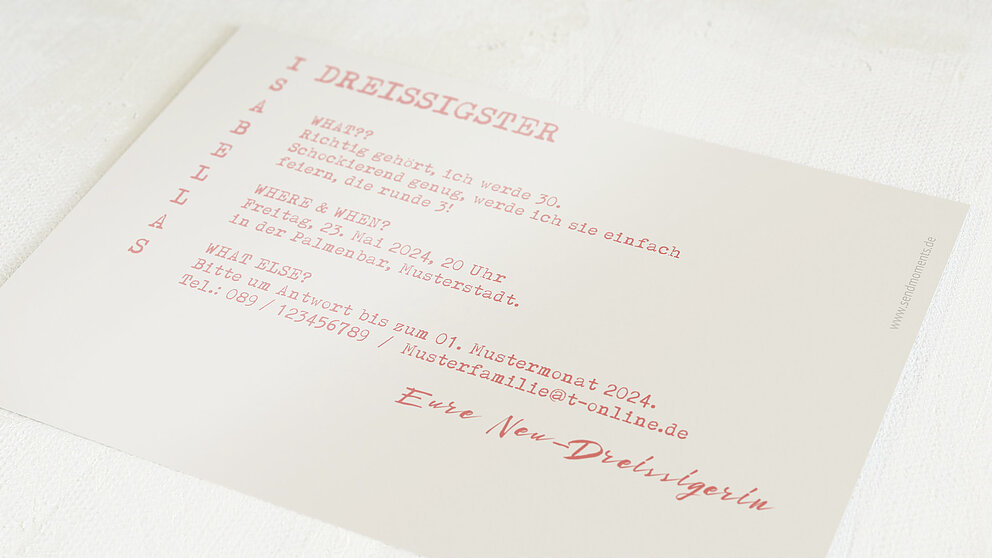 ISABELLAS
DREISSIGSTER
WHAT??
Richtig gehört, ich werde 30.
Schockierend genug, werde ich sie einfach
feiern, die runde 3!
WHERE & WHEN?
Freitag, 23. Mai 2024, 20 Uhr
in der Palmenbar, Musterstadt.
WHAT ELSE?
Bitte um Antwort bis zum 01. Mustermonat 2024.
Tel.: 089 / 123456789 / Musterfamilie@t-online.de
Eure Neu-Dreissigerin
www.sendmoments.de